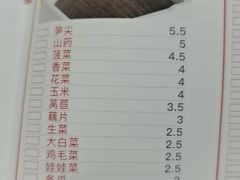 笋尖 5.5
山药 5
菠菜 4.5
香菜 4
花菜 4
玉米 4
莴苣 3.5
藕片 3
生菜 2.5
大白菜 2.5
鸡毛菜 2.5
娃娃菜 2.5